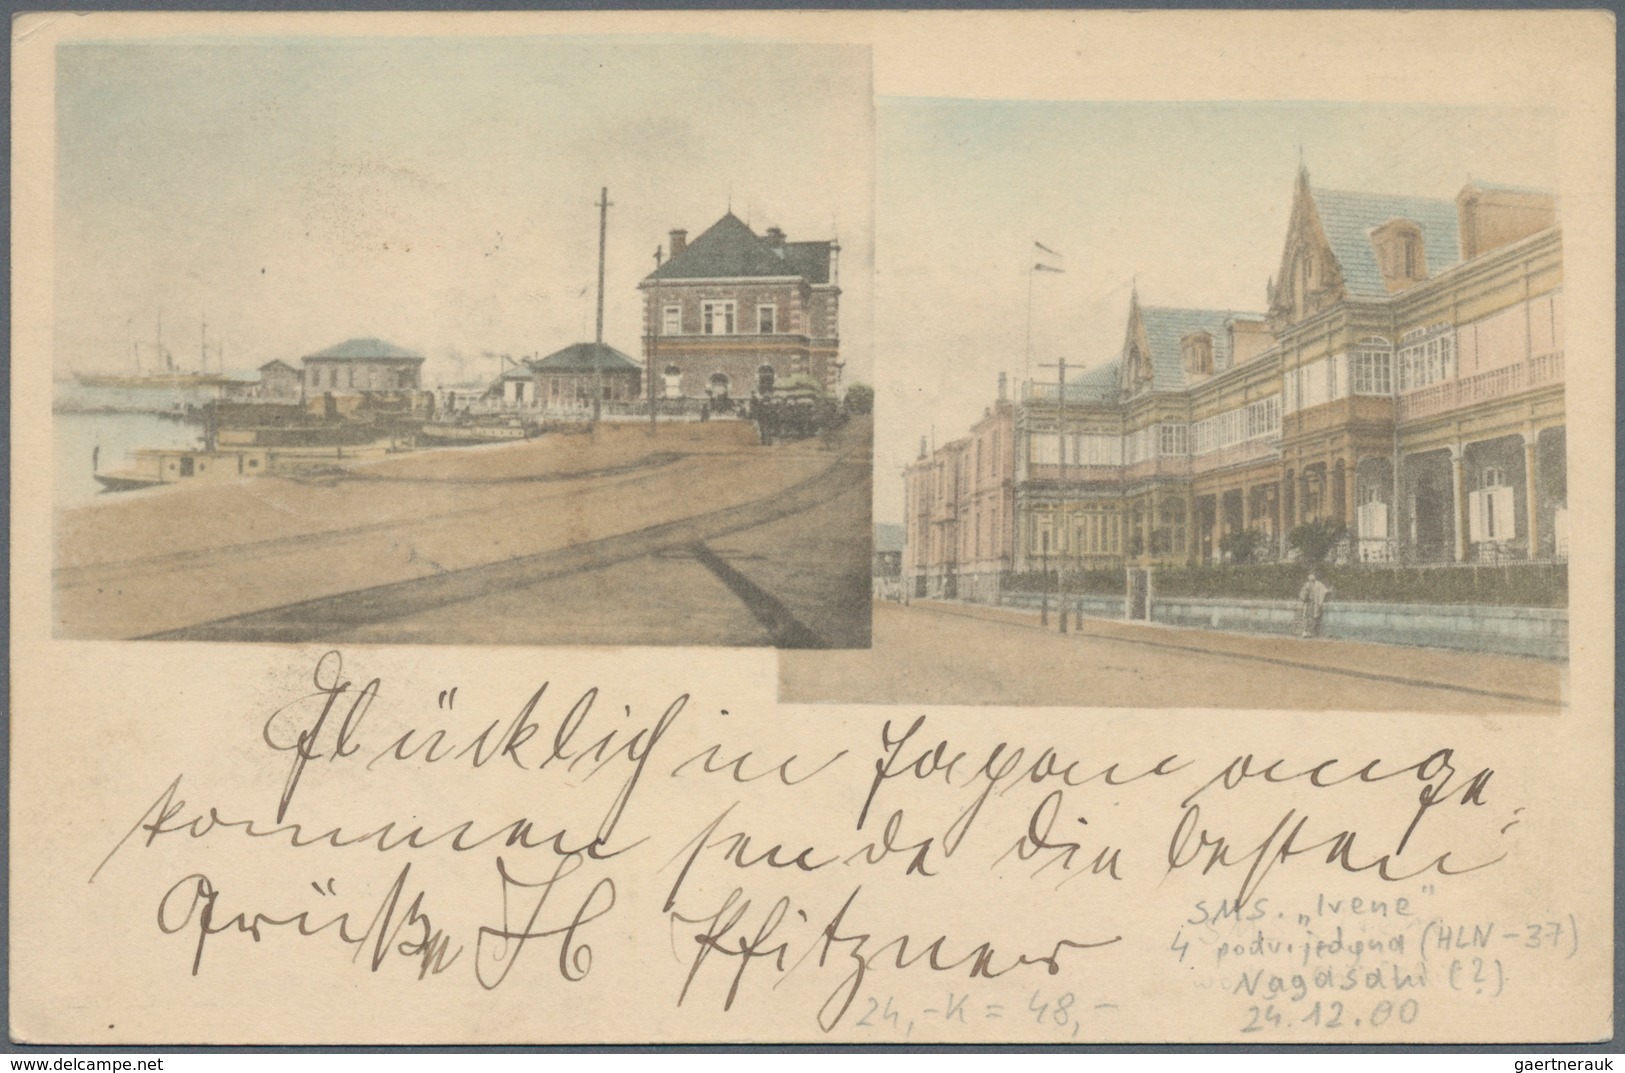 Glücklich in Japan ange-
kommen sende die besten
Grüße H Pfitzner
SMS. „Irene“
4 podvrijedna (HLN-37)
Nagasaki (?).
24.12.00
24,-K = 48,-
www.delcampe.net
gaertnerauk